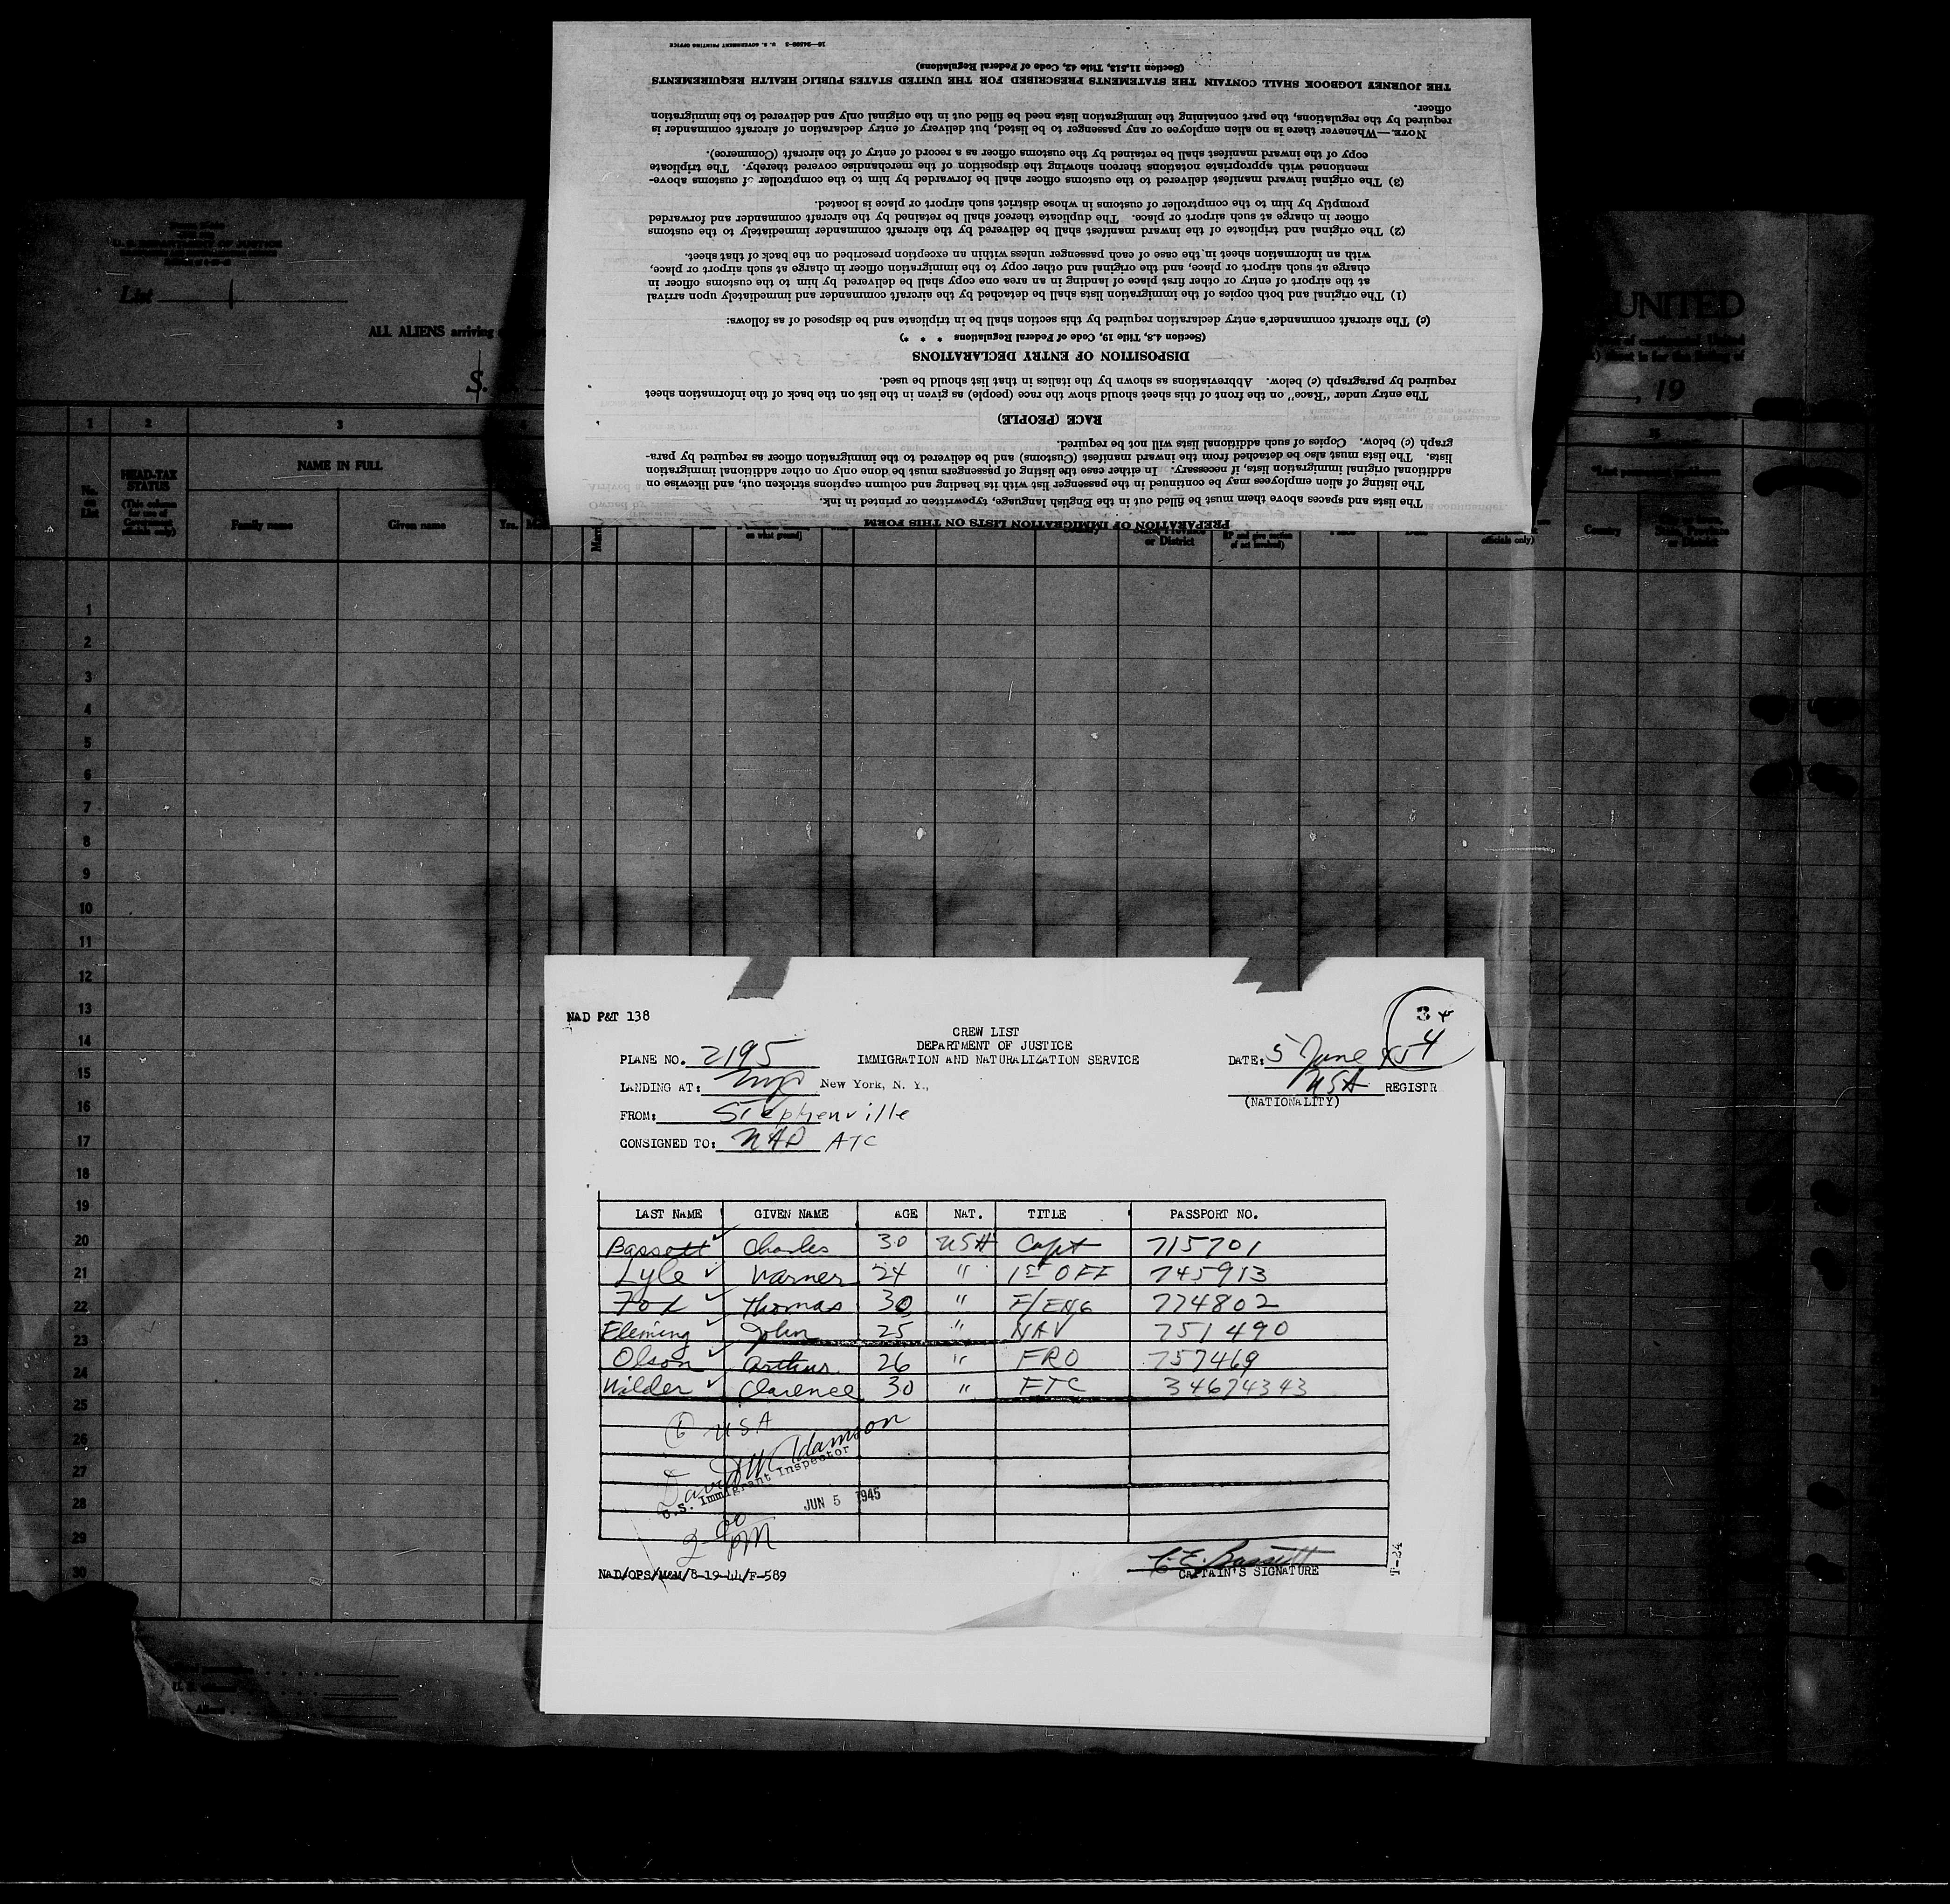 PREPARATION OF IMMIGRATION LISTS ON THIS FORM
The lists and spaces above them must be filled out in the English language, typewritten or printed in ink.
The listing of alien employees may be continued in the passenger list with its heading and column captions stricken out, and likewise on
additional original immigration lists, if necessary. In either case the listing of passengers must be done only on other additional immigration
lists. The lists must also be detached from the inward manifest (Customs) and be delivered to the immigration officer as required by para-
graph (c) below. Copies of such additional lists will not be required.
RACE (PEOPLE)
The entry under "Race" on the front of this sheet should show the race (people) as given in the list on the back of the information sheet
required by paragraph (c) below. Abbreviations as shown by the italics in that list should be used.
DISPOSITION OF ENTRY DECLARATIONS
(Section 4.8, Title 19, Code of Federal Regulations * * *)
(c) The aircraft commander's entry declaration required by this section shall be in triplicate and be disposed of as follows:
(1) The original and both copies of the immigration lists shall be detached by the aircraft commander and immediately upon arrival
at the airport of entry or other first place of landing in an area one copy shall be delivered by him to the customs officer in
charge at such airport or place, and the original and other copy to the immigration officer in charge at such airport or place,
with an information sheet in the case of each passenger unless within an exception prescribed on the back of that sheet.
(2) The original and triplicate of the inward manifest shall be delivered by the aircraft commander immediately to the customs
officer in charge at such airport or place. The duplicate thereof shall be retained by the aircraft commander and forwarded
promptly by him to the comptroller of customs in whose district such airport or place is located.
(3) The original inward manifest delivered to the customs officer shall be forwarded by him to the comptroller of customs above-
mentioned with appropriate notations thereon showing the disposition of the merchandise covered thereby. The triplicate
copy of the inward manifest shall be retained by the customs officer as a record of entry of the aircraft (Commerce).
NOTE.—Whenever there is no alien employee or any passenger to be listed, but delivery of entry declaration of aircraft commander is
required by the regulations, the part containing the immigration lists need be filled out in the original only and delivered to the immigration
officer.
THE JOURNEY LOGBOOK SHALL CONTAIN THE STATEMENTS PRESCRIBED FOR THE UNITED STATES PUBLIC HEALTH REQUIREMENTS
(Section 11.513, Title 42, Code of Federal Regulations)
U. S. GOVERNMENT PRINTING OFFICE
U. S. DEPARTMENT OF JUSTICE
List 1
ALL ALIENS arriving
S.
UNITED
, 19
1 2 3
No. on List
HEAD-TAX STATUS
(This column for use of Government officials only)
NAME IN FULL
Family name Given name Yrs.
or District
officials only)
Country
1
2
3
4
5
6
7
8
9
10
11
12
13
14
15
16
17
18
19
20
21
22
23
24
25
26
27
28
29
30
NAD P&T 138
3 +
4
CREW LIST
DEPARTMENT OF JUSTICE
IMMIGRATION AND NATURALIZATION SERVICE
PLANE NO. 2195
DATE: 5 June 45
LANDING AT: New York, N. Y.,
USA REGISTR
(NATIONALITY)
FROM: Stephenville
CONSIGNED TO: NAD ATC
LAST NAME GIVEN NAME AGE NAT. TITLE PASSPORT NO.
Bassett Charles 30 USA Capt 715701
Lyle Warner 24 " 1st OFF 745913
Fox Thomas 30 " F/ENG 774802
Fleming John 25 " NAV 751490
Olson Arthur 26 " FRO 757469
Wilder Clarence 30 " FTC 34674343
6 USA
David W Adamson
U.S. Immigrant Inspector
JUN 5 1945
2 00 PM
C. E. Bassett
CAPTAIN'S SIGNATURE
NAD/OPS/M&M/8-19-44/F-589
T-24